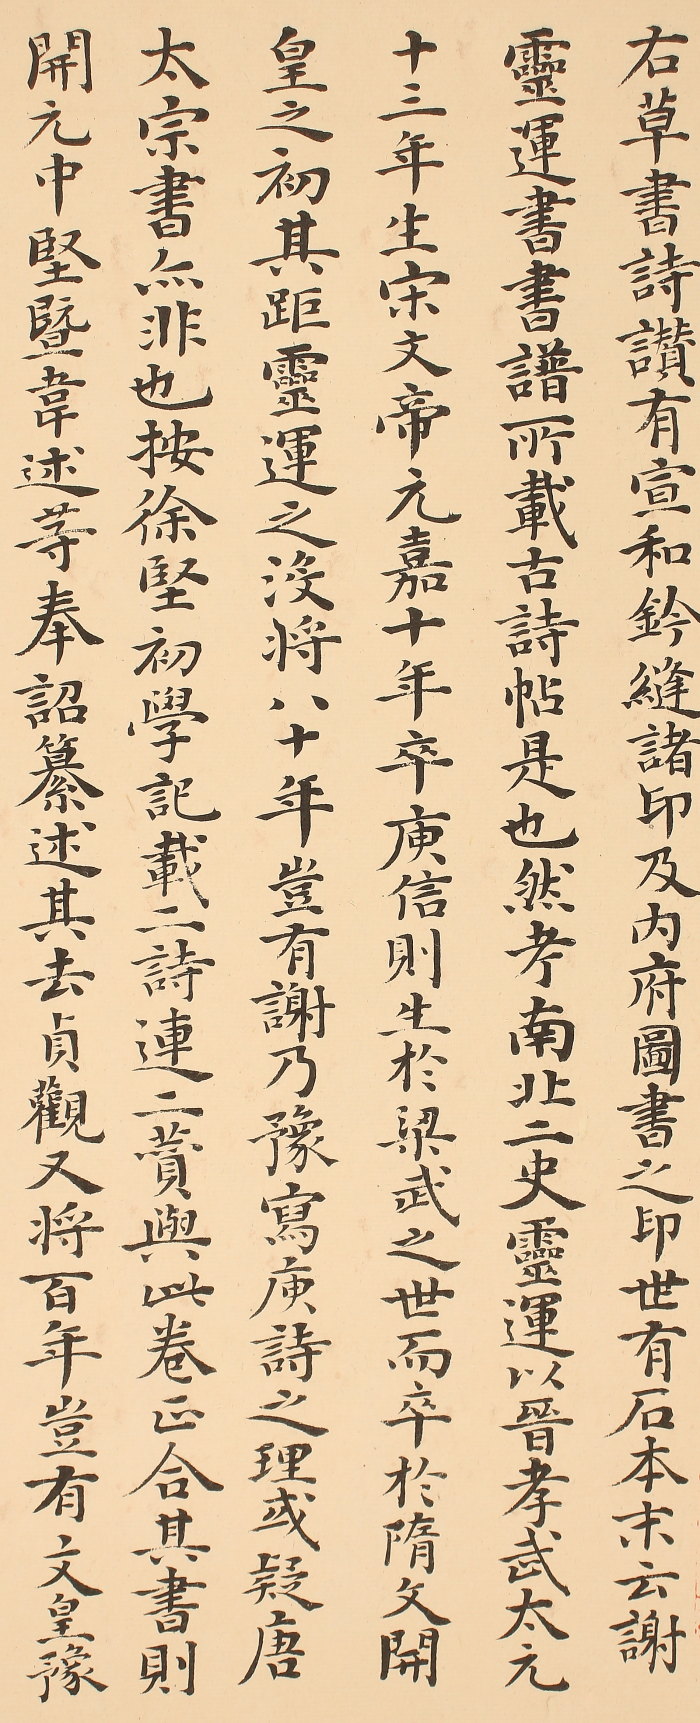 右草書詩讃有宣和鈐縫諸印及内府圖書之印世有石本末云謝
靈運書書譜所載古詩帖是也然考南北二史靈運以晉孝武太元
十三年生宋文帝元嘉十年卒庾信則生於梁武之世而卒於隋文開
皇之初其距靈運之没将八十年豈有謝乃豫寫庾詩之理或疑唐
太宗書亦非也按徐堅初學記載二詩連二賛與此卷正合其書則
開元中堅暨韋述等奉詔纂述其去貞觀又将百年豈有文皇豫